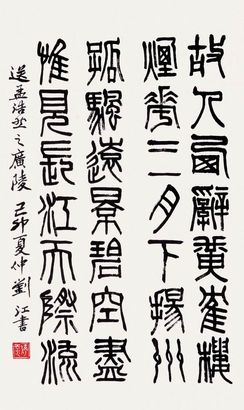 故人西辭黃隺樓
煙華三月下揚州
孤颿遠景碧空盡
惟見長江天際流
送孟浩然之廣陵 己卯夏仲劉江書